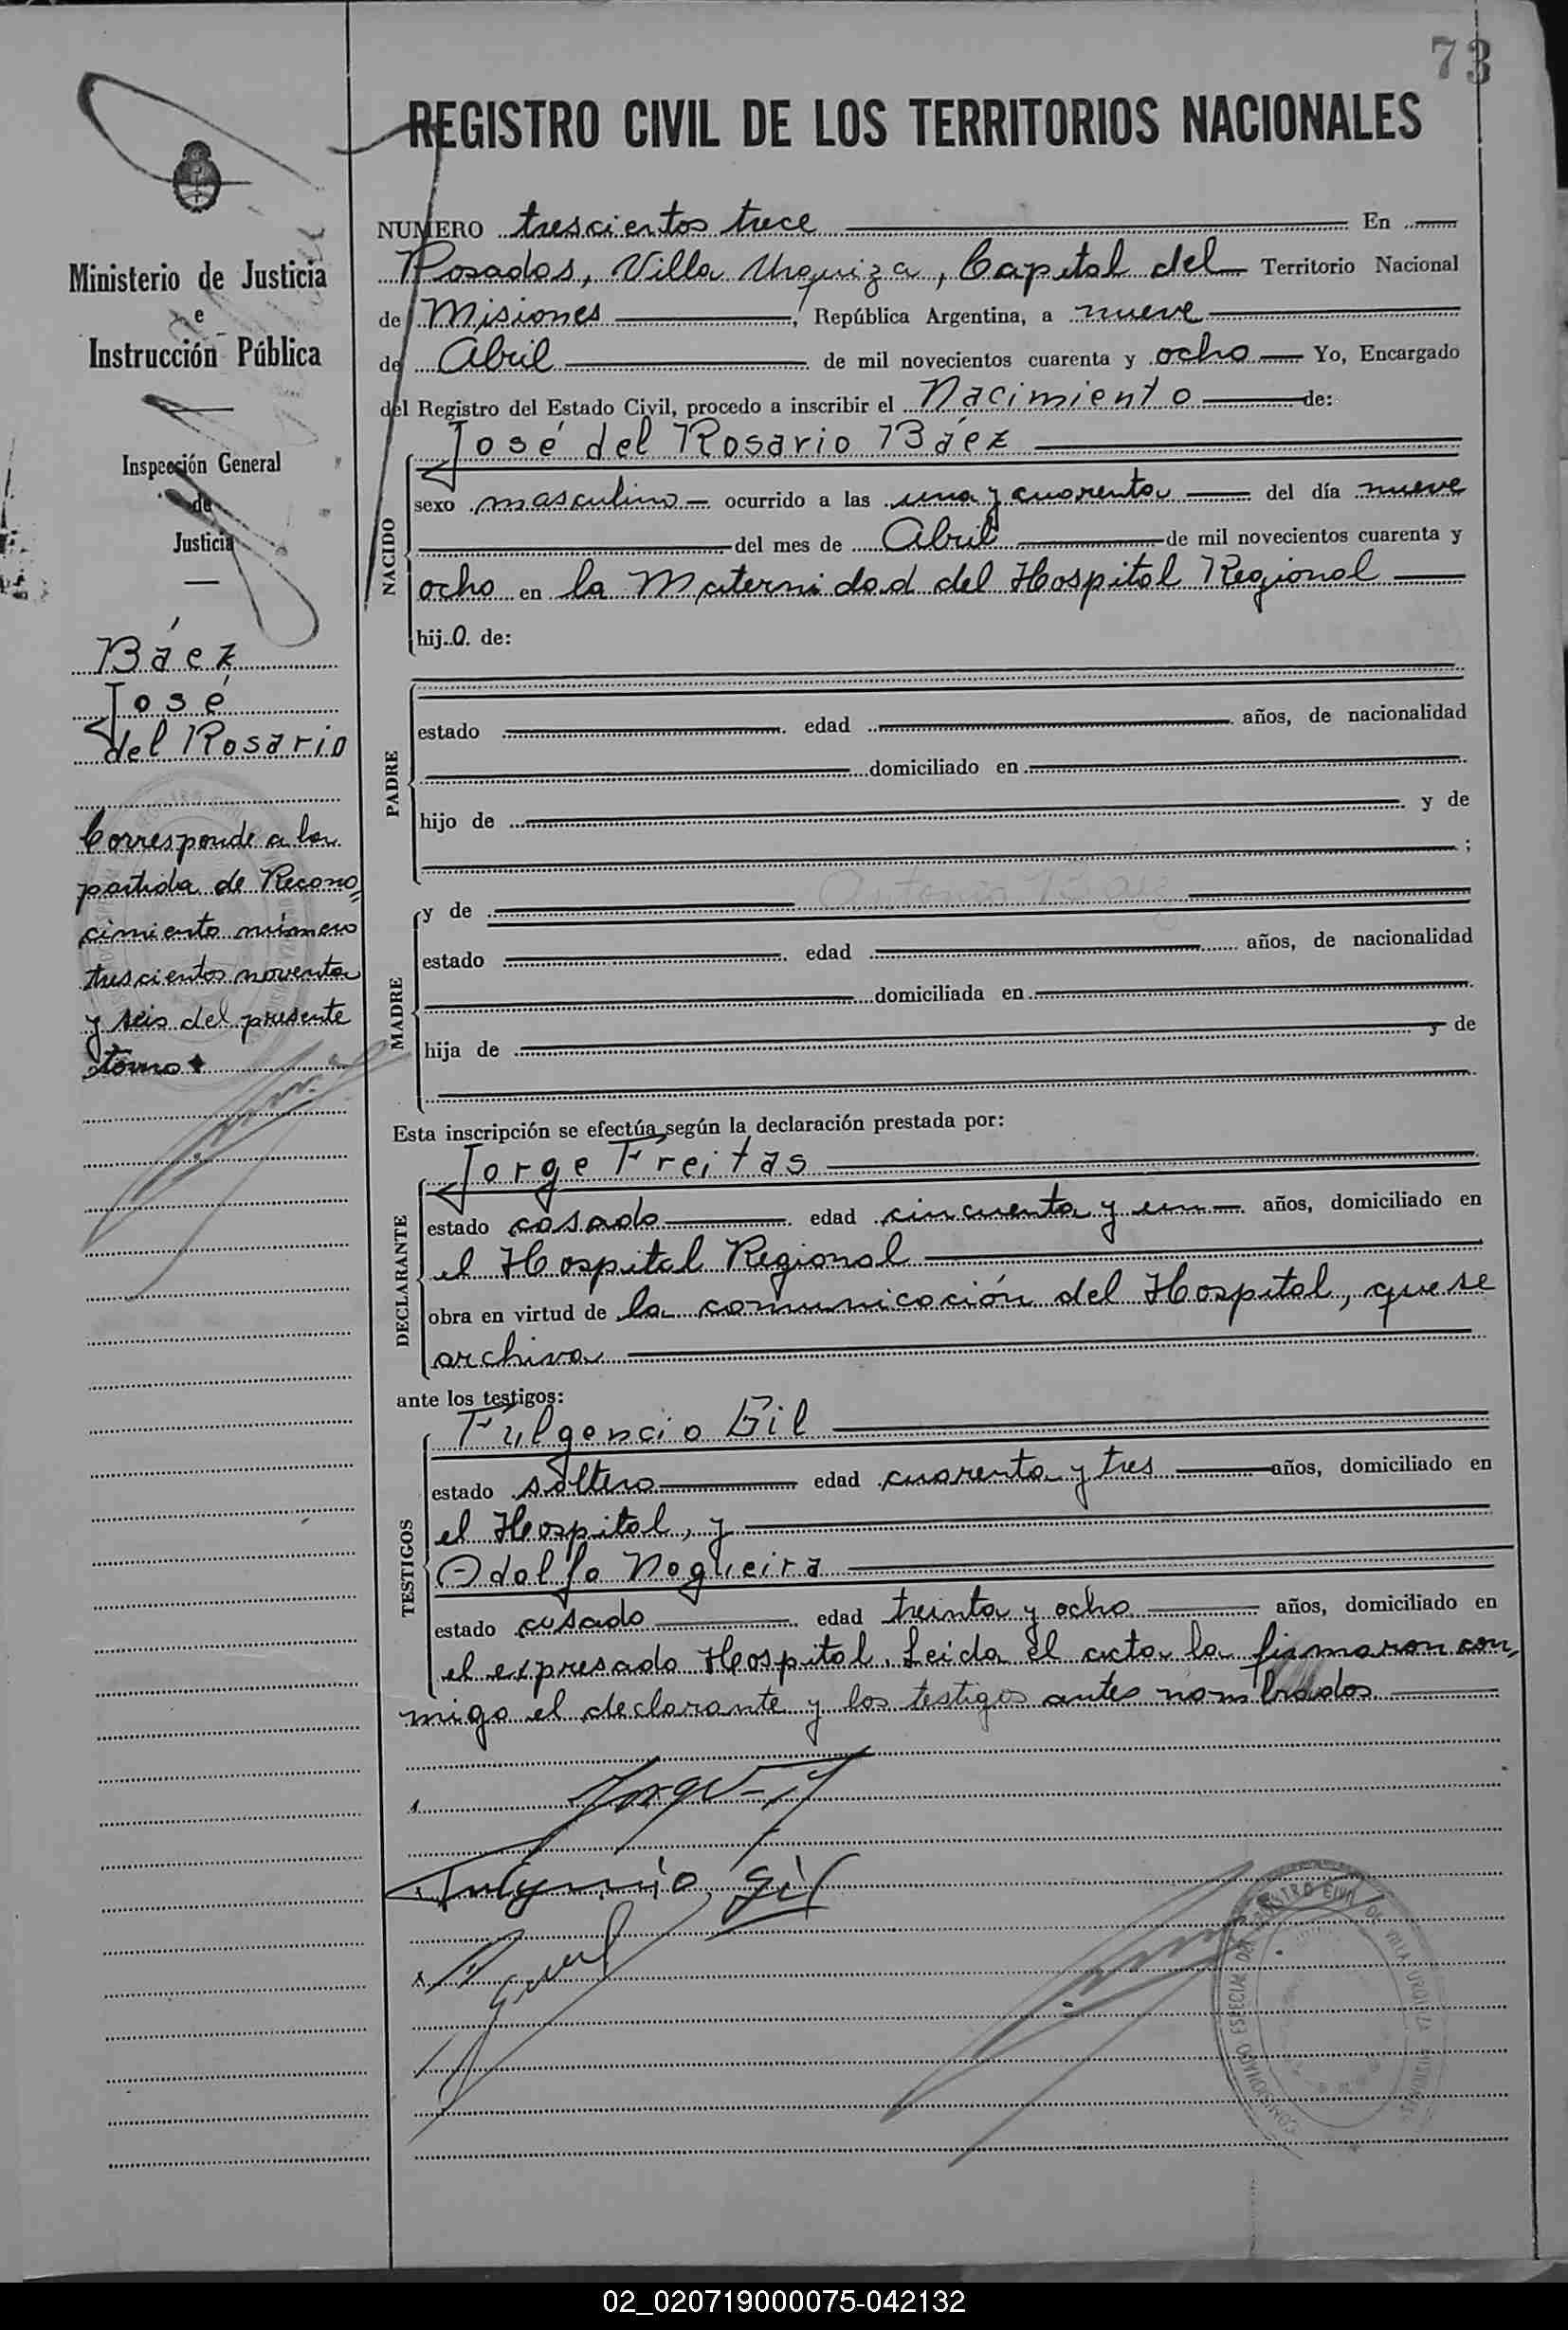 73
REGISTRO CIVIL DE LOS TERRITORIOS NACIONALES
Ministerio de Justicia
e
Instrucción Pública
Inspección General
de
Justicia
Báez
José
del Rosario
Corresponde a la
partida de Recono
cimiento número
trescientos noventa
y seis del presente
tomo
NUMERO trescientos trece En
Posadas, Villa Urquiza, Capital del Territorio Nacional
de Misiones, República Argentina, a nueve
de Abril de mil novecientos cuarenta y ocho Yo, Encargado
del Registro del Estado Civil, procedo a inscribir el Nacimiento de:
José del Rosario Báez
NACIDO
sexo masculino ocurrido a las una y cuarenta del día nueve
del mes de Abril de mil novecientos cuarenta y
ocho en la Maternidad del Hospital Regional
hijo de:
PADRE
estado edad años, de nacionalidad
domiciliado en
hijo de y de
;
MADRE
y de Antonia Baez
estado edad años, de nacionalidad
domiciliada en
hija de y de
Esta inscripción se efectúa según la declaración prestada por:
Jorge Freitas
DECLARANTE
estado casado edad cincuenta y un años, domiciliado en
el Hospital Regional
obra en virtud de la comunicación del Hospital, que se
archiva
ante los testigos:
Fulgencio Gil
TESTIGOS
estado soltero edad cuarenta y tres años, domiciliado en
el Hospital, y
Adolfo Nogueira
estado casado edad treinta y ocho años, domiciliado en
el expresado Hospital. Leida el acta la firmaron con
migo el declarante y los testigos antes nombrados
Fulgencio Gil
COMISIONADO ESPECIAL DEL REGISTRO CIVIL DE VILLA URQUIZA MISIONES
02_020719000075-042132